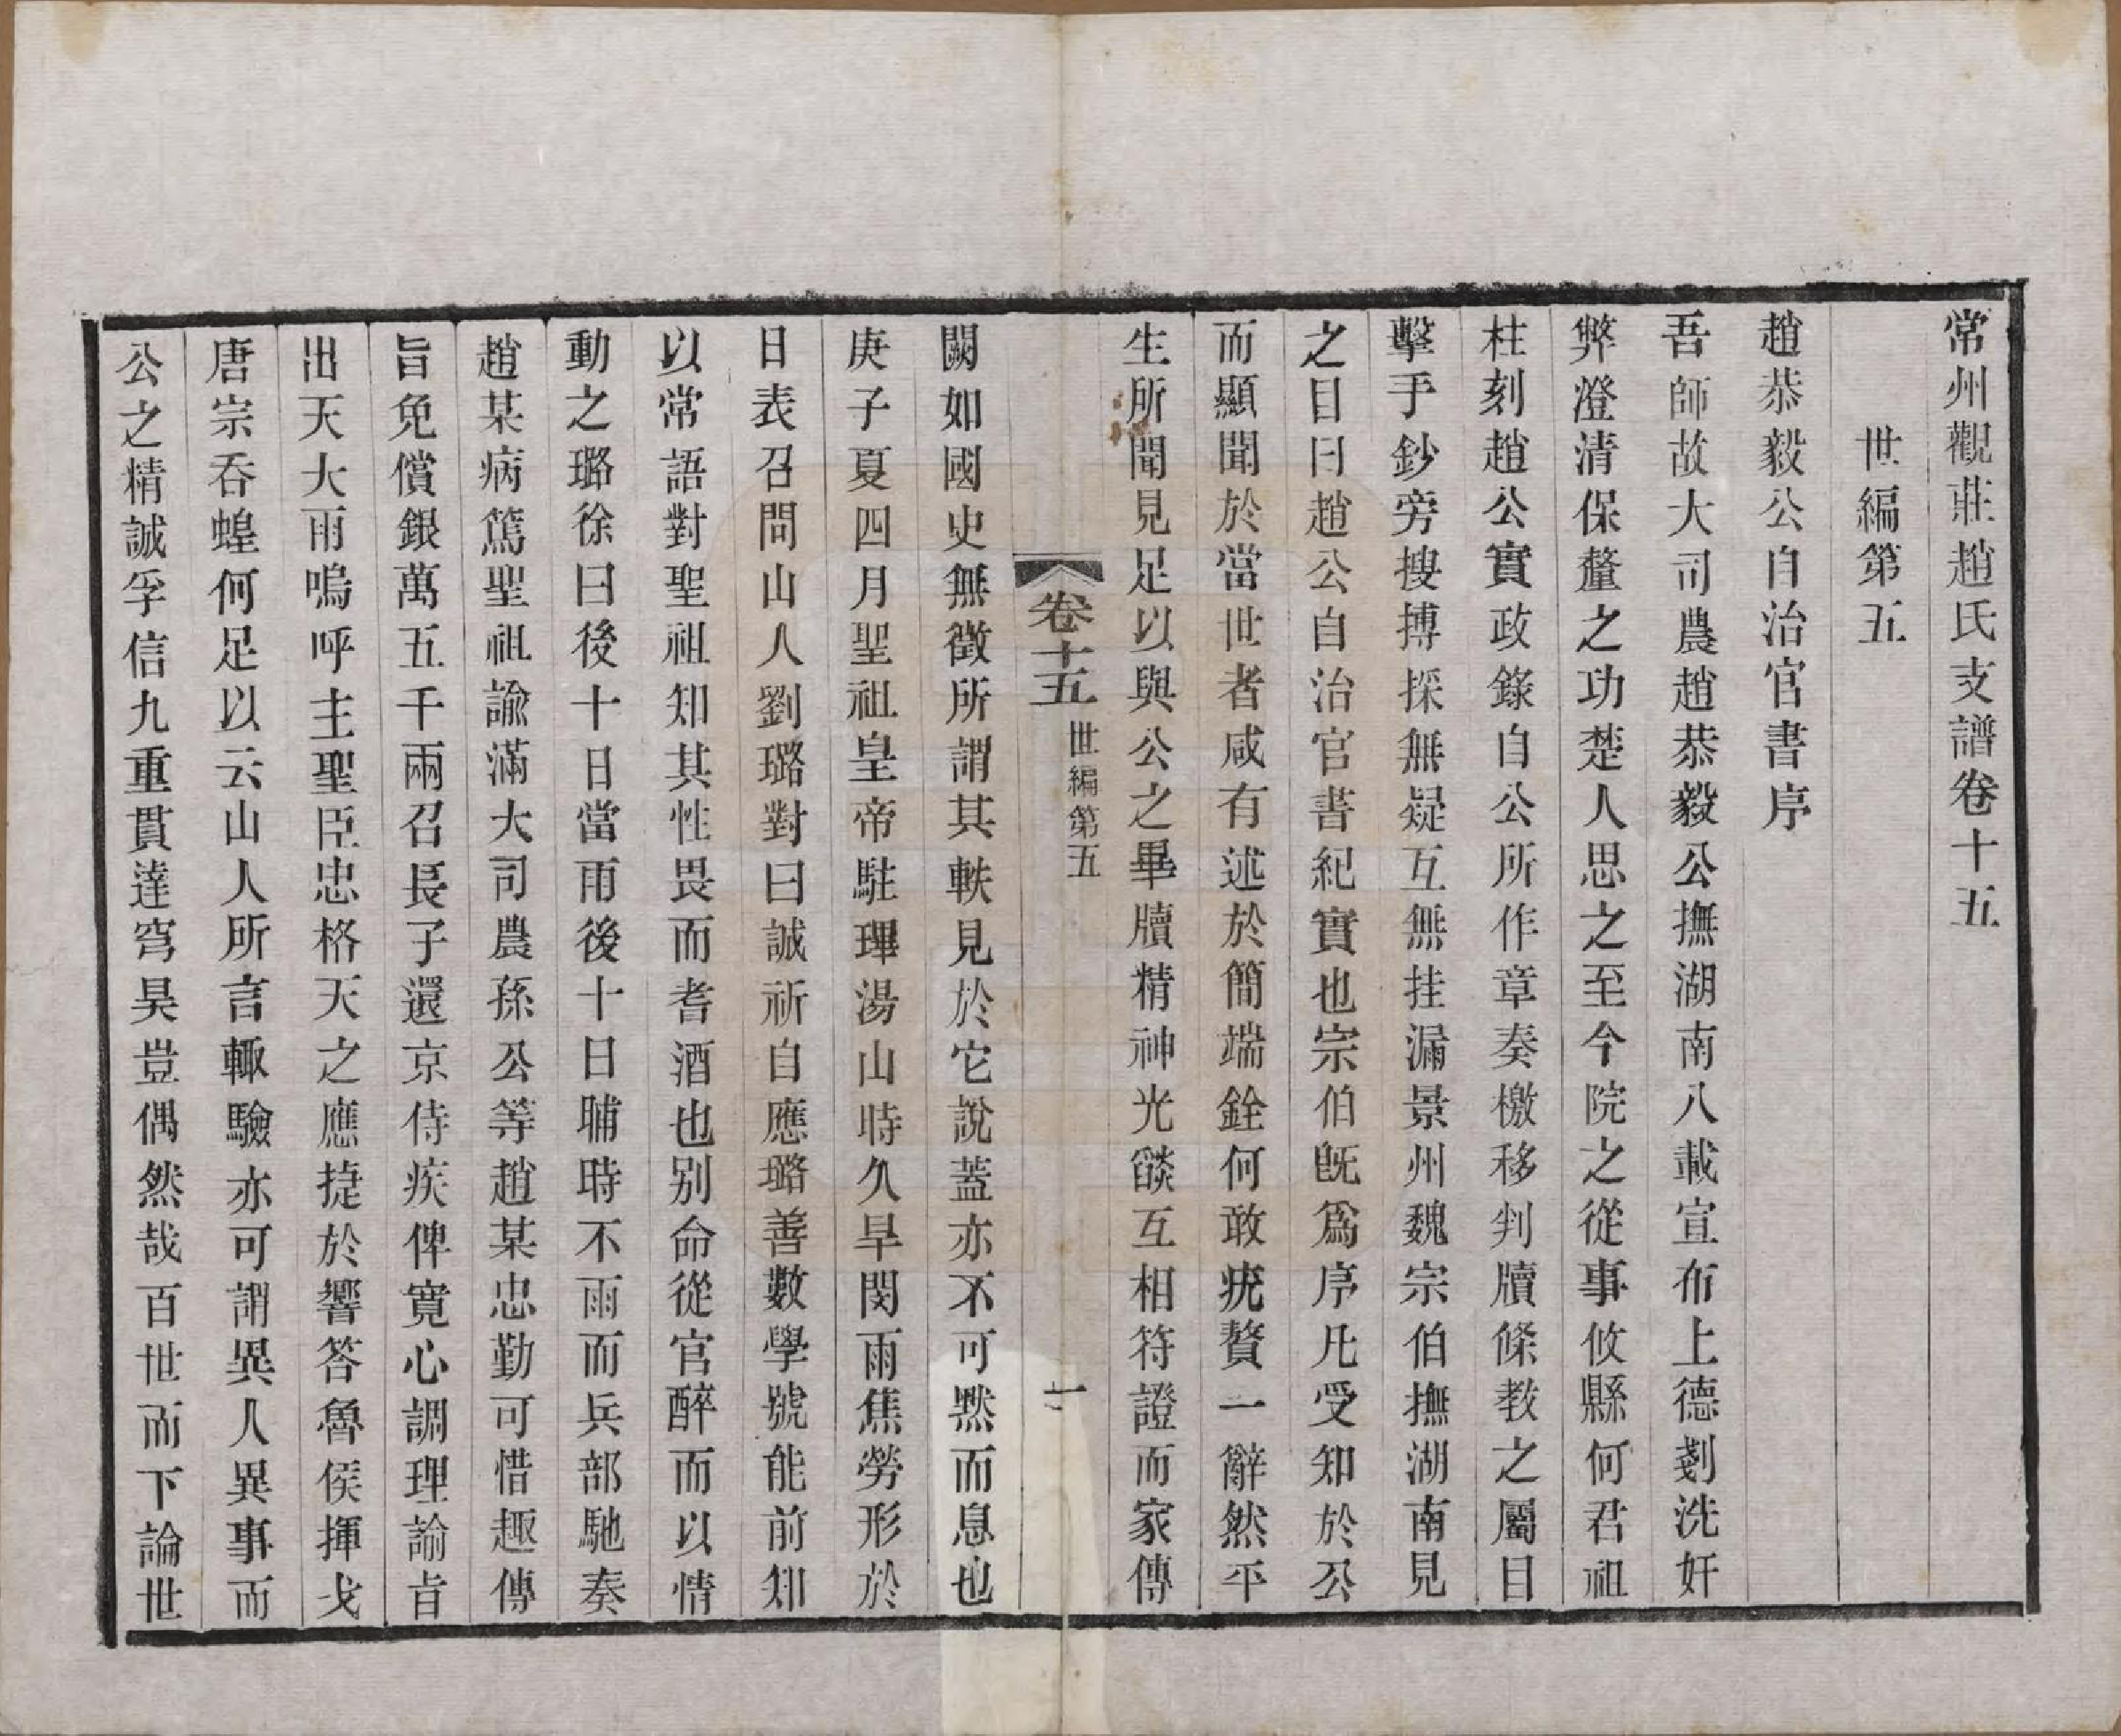 常州觀莊趙氏支譜卷十五
世編第五
趙恭毅公自治官書序
吾師故大司農趙恭毅公撫湖南八載宣布上德剗洗奸
弊澄清保釐之功楚人思之至今院之從事攸縣何君祖
柱刻趙公實政錄自公所作章奏檄移判牘條教之屬目
擊手鈔旁搜搏採無疑互無挂漏景州魏宗伯撫湖南見
之目曰趙公自治官書紀實也宗伯旣爲序凡受知於公
而顯聞於當世者咸有述於簡端銓何敢疣贅一辭然平
生所聞見足以與公之畢牘精神光燄互相符證而家傳
卷十五 世編第五 一
闕如國史無徵所謂其軼見於它說蓋亦不可黙而息也
庚子夏四月聖祖皇帝駐蹕湯山時久旱閔雨焦勞形於
日表召問山人劉璐對曰誠祈自應璐善數學號能前知
以常語對聖祖知其性畏而耆酒也别命從官醉而以情
動之璐徐曰後十日當雨後十日晡時不雨而兵部馳奏
趙某病篤聖祖諭滿大司農孫公等趙某忠勤可惜趣傳
旨免償銀萬五千兩召長子還京侍疾俾寬心調理諭旨
出天大雨嗚呼主聖臣忠格天之應捷於響答魯侯揮戈
唐宗呑蝗何足以云山人所言輙驗亦可謂異人異事而
公之精誠孚信九重貫達穹昊豈偶然哉百世而下論世